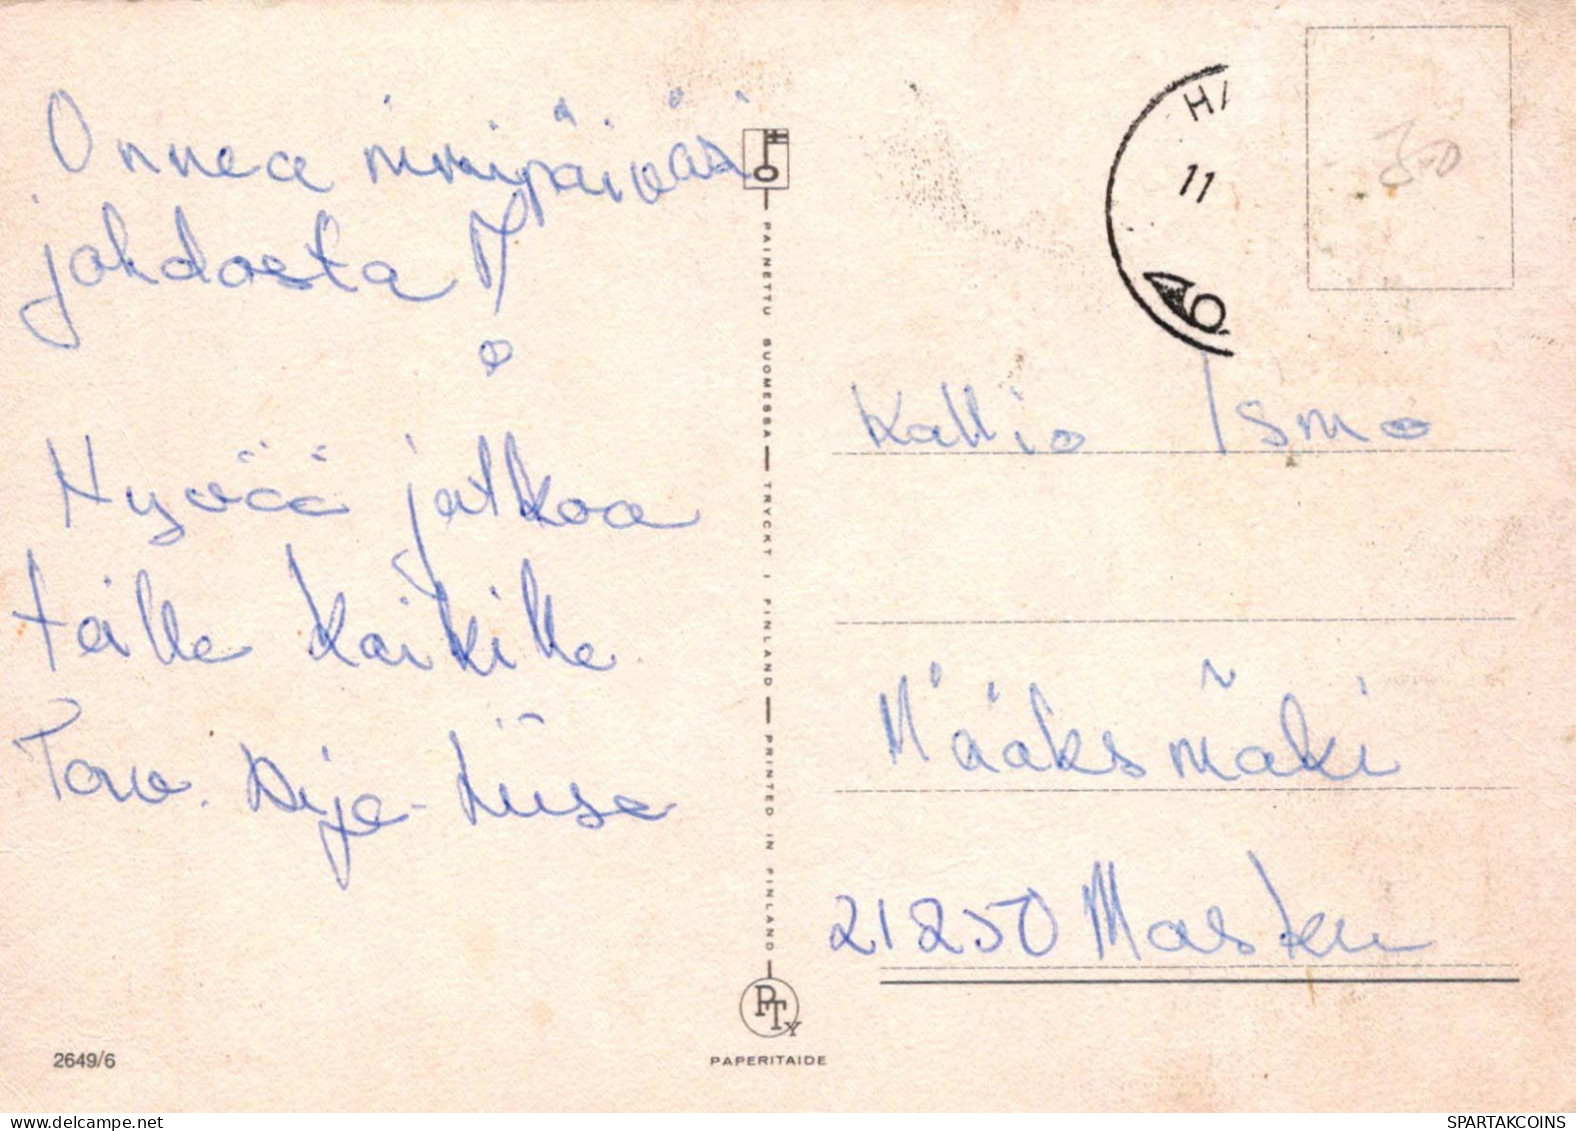 Onnea nimipäiväsi
johdosta !
Hyvää jatkoa
teille kaikille
Tov. Aija-Liisa
PAINETTU SUOMESSA — TRYCKT I FINLAND — PRINTED IN FINLAND
PTy
PAPERITAIDE
2649/6
HA
11
300
Kallio Ismo
Määksmäki
21250 Masku
www.delcampe.net
SPARTAKCOINS